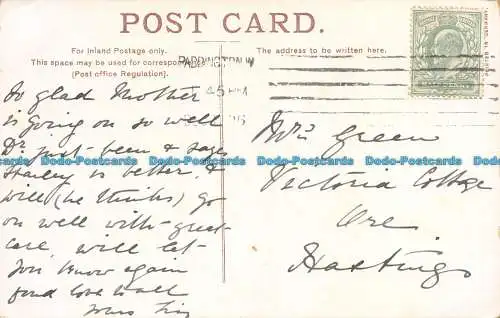 POST CARD.
For Inland Postage only.
This space may be used for correspondence
(Post office Regulation).
The address to be written here.
PADDINGTON W
So glad Mother
is going on so well
Dr. just been & says
Stanley is better, &
will (he thinks) go
on well with great
care, will let
you know again
fond love to all
Yours
Mrs Green
Victoria Cottage
Ore
Hastings
Dodo-Postcards Dodo-Postcards Dodo-Postcards Dodo-Postcards